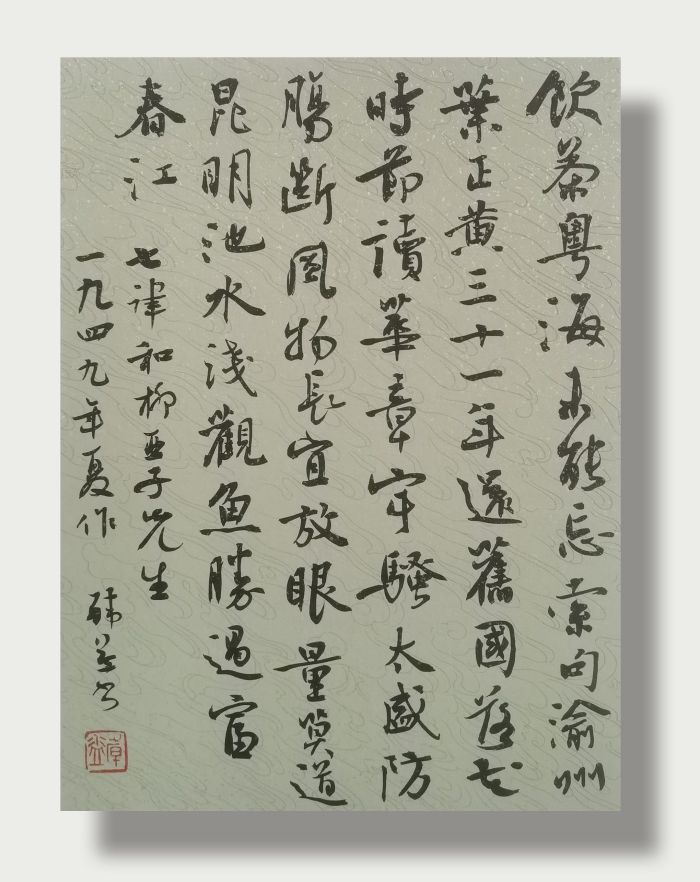 飲茶粵海未能忘索句渝州
葉正黃三十一年還舊國落花
時節讀華章牢騷太盛防
腸斷風物長宜放眼量莫道
昆明池水淺觀魚勝過富
春江
七律和柳亞子先生
一九四九年夏作